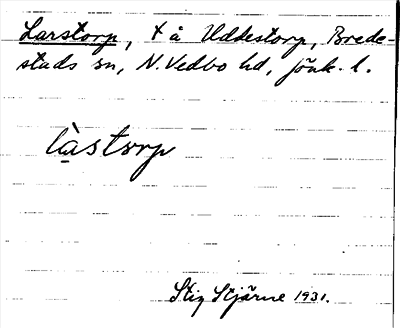 Larstorp, t å Uddestorp, Brede-
stads sn, N. Vedbo hd, Jönk. l.
làstorp
Stig Stjärne 1931.